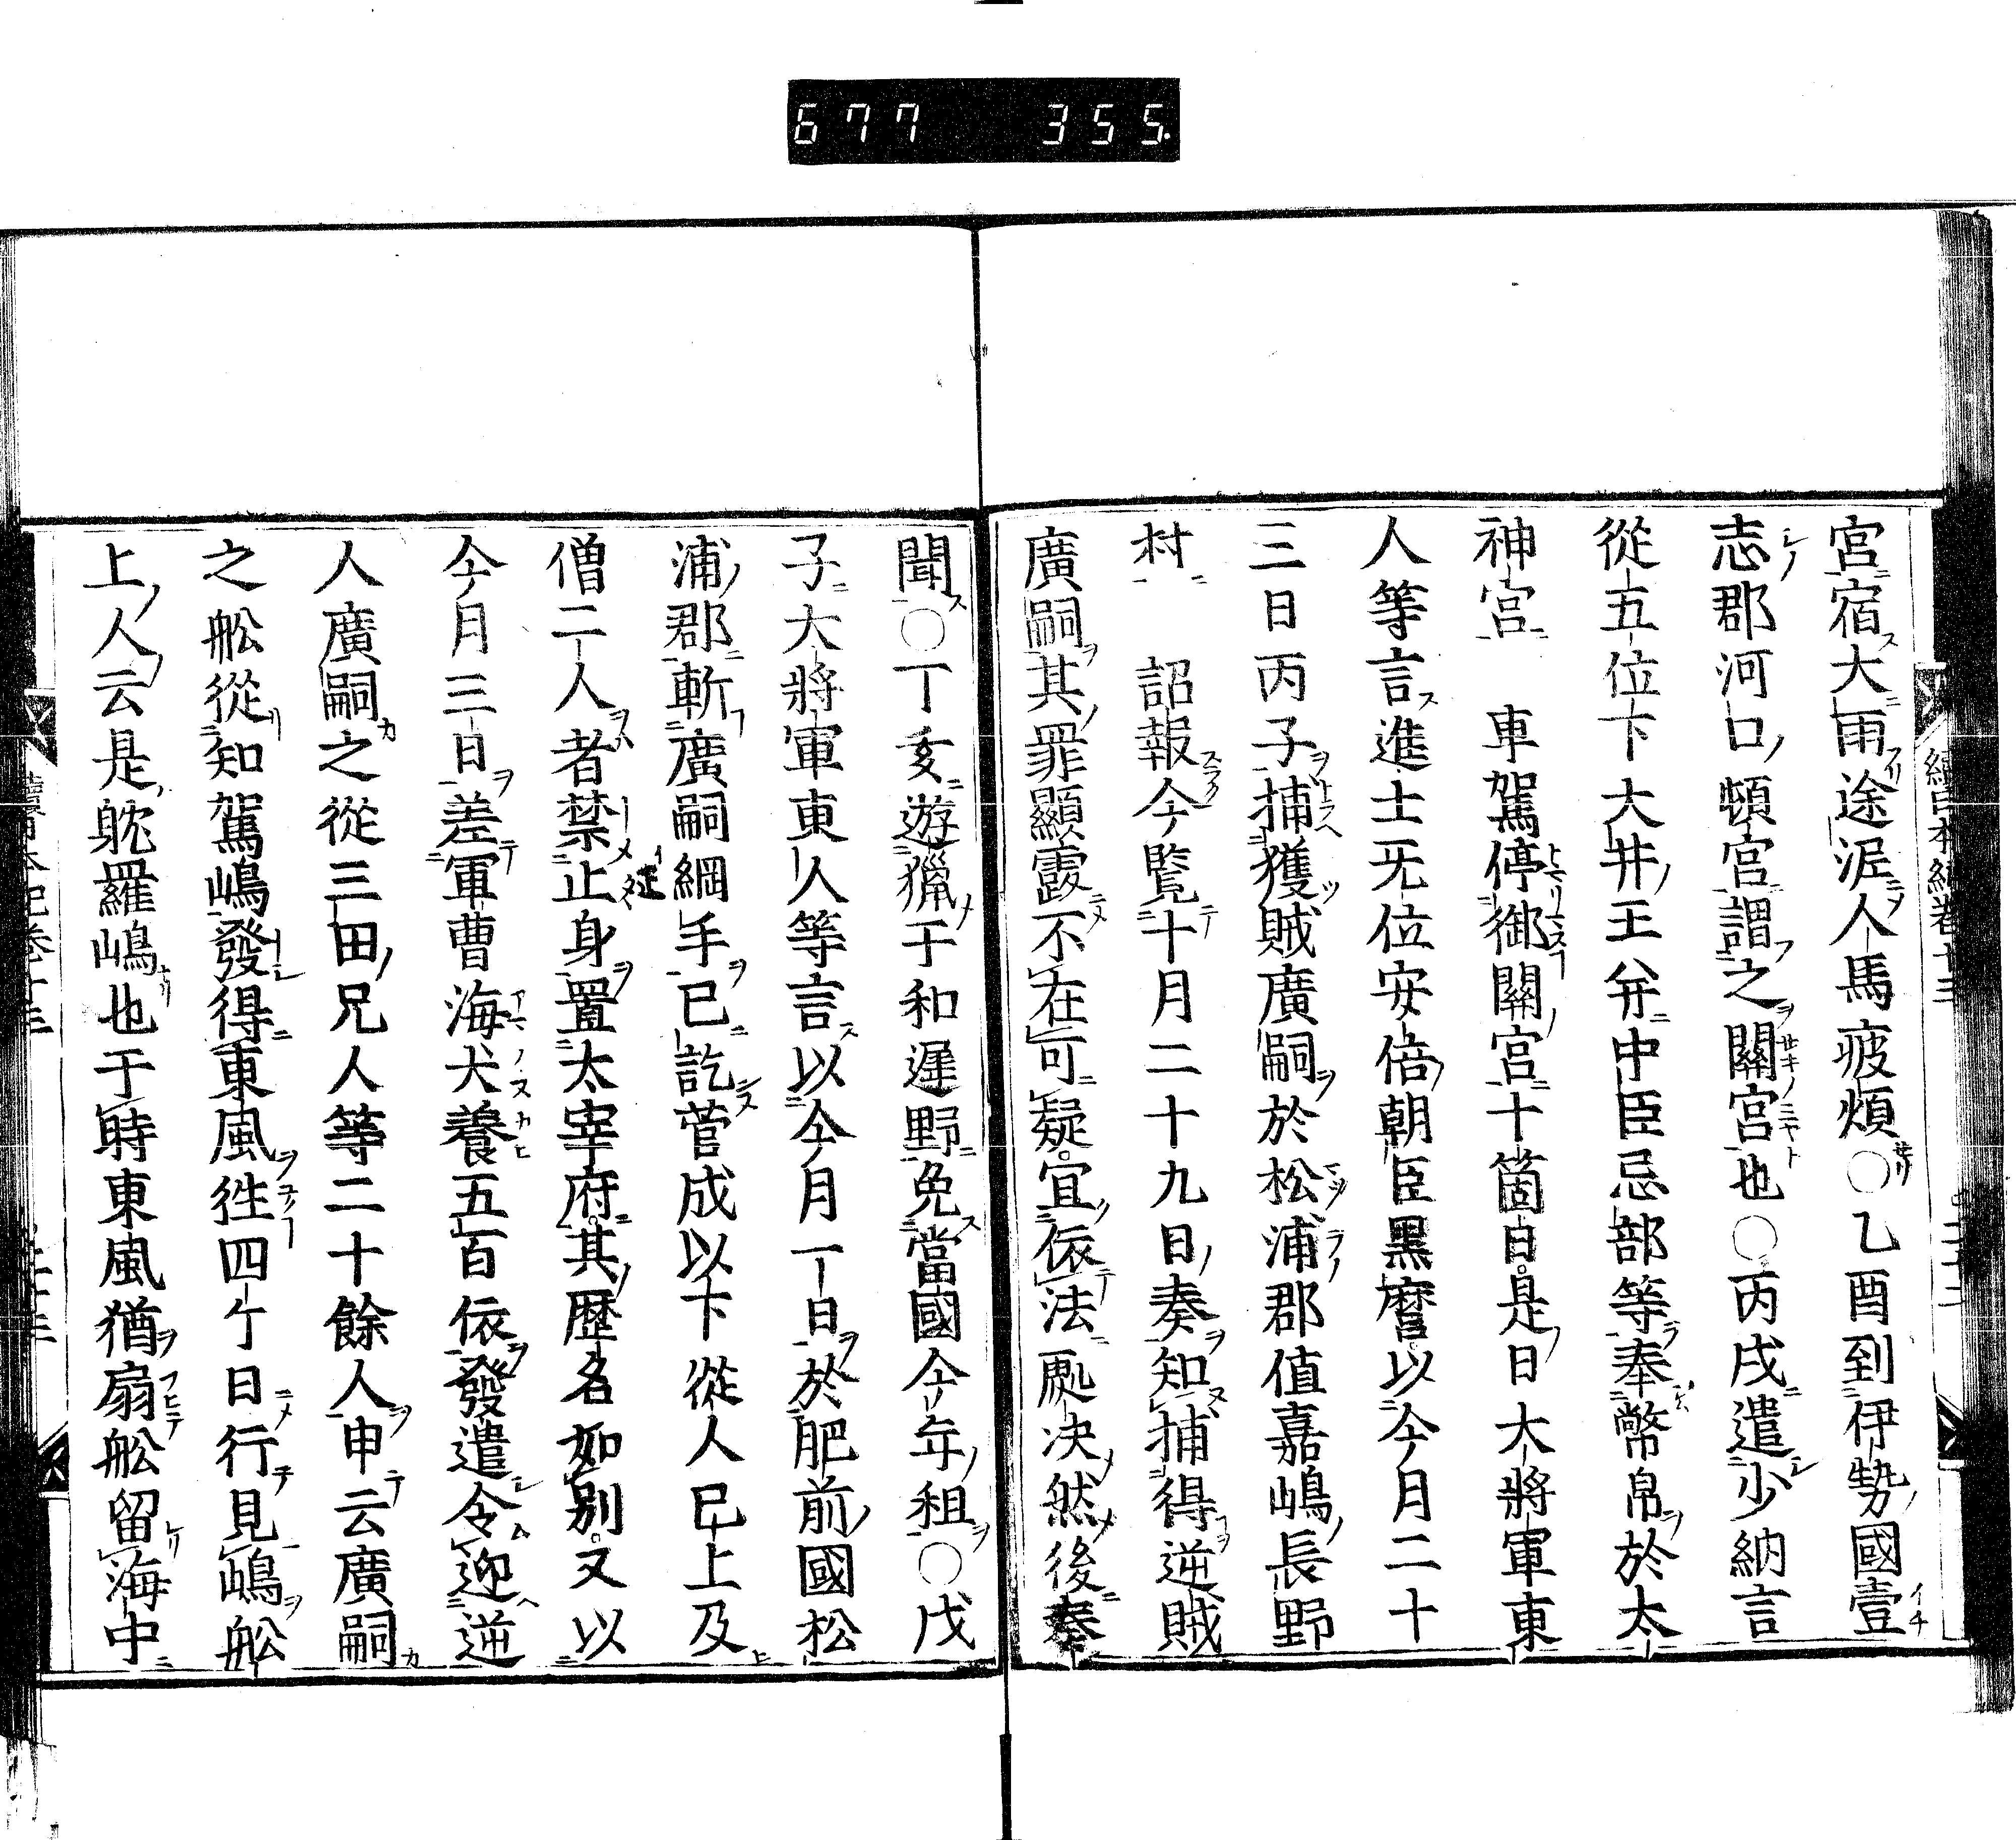 677 355.
宮宿大雨途泥人馬疲煩○乙酉到伊勢國壹
志郡河口頓宮謂之關宮也○丙戌遣少納言
從五位下大井王幷中臣忌部等奉幣帛於太
神宮　車駕停御關宮十箇日是日大將軍東
人等言進士无位安倍朝臣黑麿以今月二十
三日丙子捕獲賊廣嗣於松浦郡值嘉嶋長野
村　詔報今覽十月二十九日奏知捕得逆賊
廣嗣其罪顯露不在可疑宜依法處决然後奏
聞○丁亥遊獵于和遲野免當國今年租○戊
子大將軍東人等言以今月一日於肥前國松
浦郡斬廣嗣綱手已訖菅成以下從人已上及
僧二人者禁止身置太宰府其歷名如別又以
今月三日差軍曹海犬養五百依發遣令迎逆
人廣嗣之從三田兄人等二十餘人申云廣嗣
之舩從知駕嶋發得東風徃四ケ日行見嶋舩
上人云是躭羅嶋也于時東風猶扇舩留海中